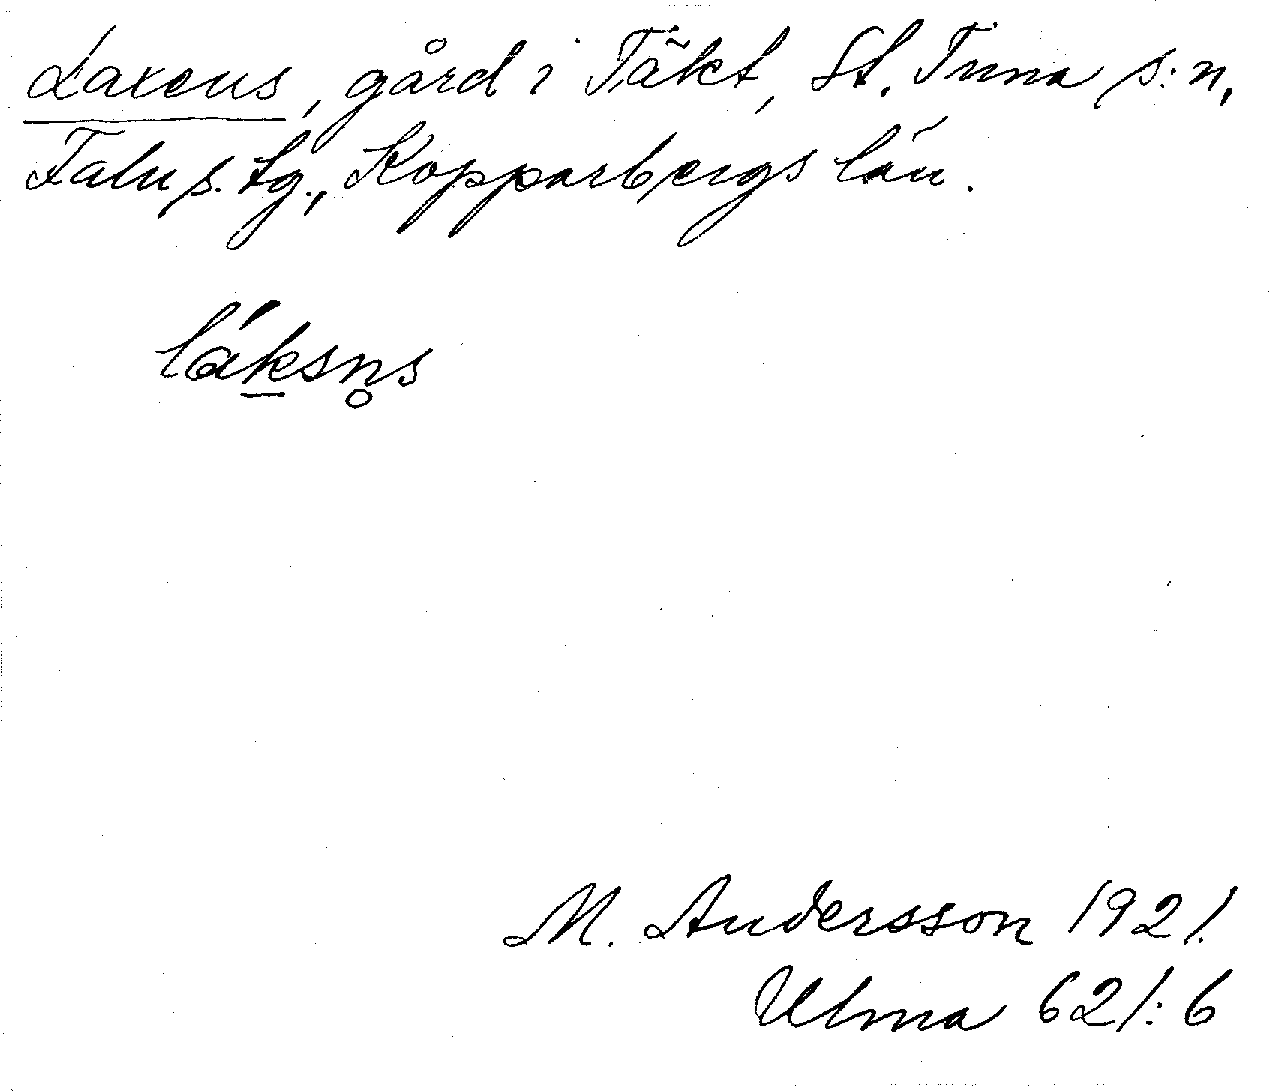 Laxens, gård i Täkt, St. Tuna s:n,
Falu s. tg., Kopparbergs län.
láksn̥s
M. Andersson 1921.
Ulma 621:6